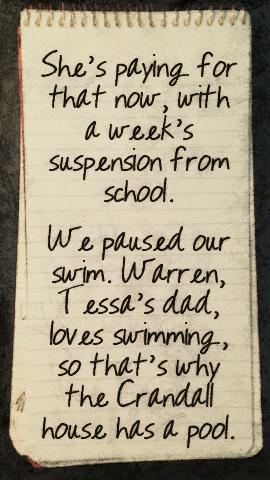 She's paying for
that now, with
a week's
suspension from
school.
We paused our
swim. Warren,
Tessa's dad,
loves swimming,
so that's why
the Crandall
house has a pool.